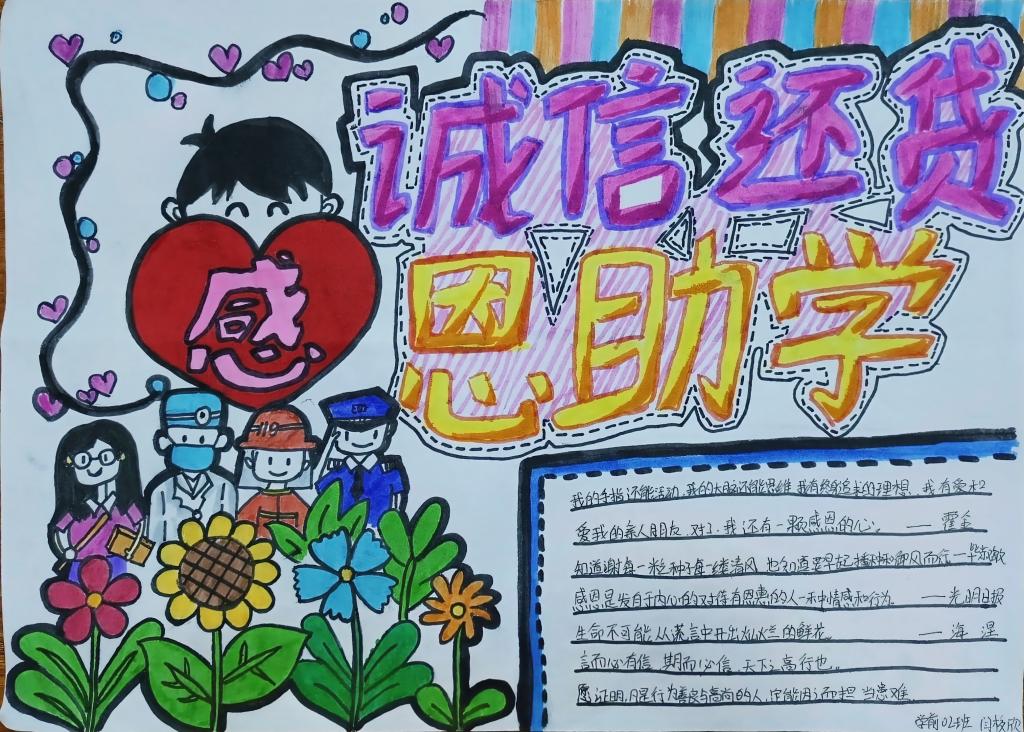 诚信还贷
感
恩助学
119
我的手指还能活动,我的大脑还能思维,我有终身追求的理想,我有爱和
爱我的亲人朋友,对了,我还有一颗感恩的心。 —— 霍金
知道谢每一粒种每一缕清风,也知道要早起播种和御风而行
感恩是发自于内心的对待有恩惠的人一种情感和行为。 ——光明日报
生命不可能从谎言中开出灿烂的鲜花。 —— 海涅
言而必有信,期而必信,天下之高行也。
愿证明,凡是行为善良与高尚的人,定能因之而担当患难.
学前02班 闫